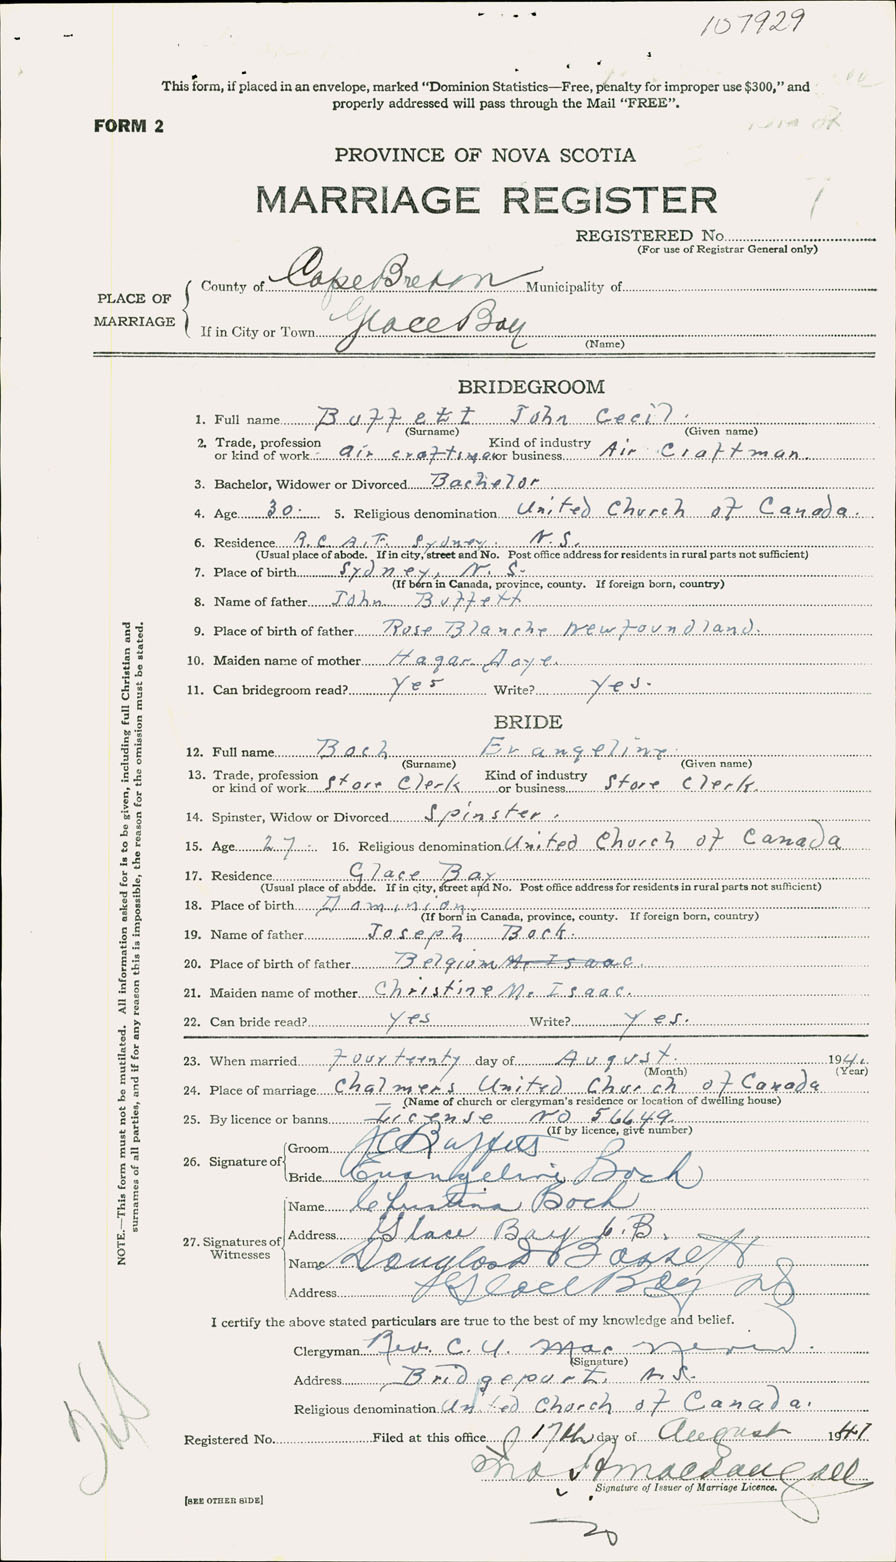 107929
This form, if placed in an envelope, marked "Dominion Statistics—Free, penalty for improper use $300," and
properly addressed will pass through the Mail "FREE".
FORM 2
PROVINCE OF NOVA SCOTIA
MARRIAGE REGISTER
REGISTERED No.
(For use of Registrar General only)
PLACE OF MARRIAGE
County of Cape Breton Municipality of
If in City or Town Glace Bay
(Name)
BRIDEGROOM
1. Full name Buffett John Cecil.
(Surname) (Given name)
2. Trade, profession or kind of work air craftsman Kind of industry or business Air Craftman
3. Bachelor, Widower or Divorced Bachelor
4. Age 30. 5. Religious denomination United Church of Canada.
6. Residence R.C.A.F. Sydney. N.S.
(Usual place of abode. If in city, street and No. Post office address for residents in rural parts not sufficient)
7. Place of birth Sydney, N.S.
(If born in Canada, province, county. If foreign born, country)
8. Name of father John Buffett
9. Place of birth of father Rose Blanche Newfoundland.
10. Maiden name of mother Hagar
11. Can bridegroom read? Yes Write? Yes.
BRIDE
12. Full name Boch Evangeline
(Surname) (Given name)
13. Trade, profession or kind of work Store Clerk Kind of industry or business Store Clerk.
14. Spinster, Widow or Divorced Spinster.
15. Age 27. 16. Religious denomination United Church of Canada
17. Residence Glace Bay
(Usual place of abode. If in city, street and No. Post office address for residents in rural parts not sufficient)
18. Place of birth Dominion
(If born in Canada, province, county. If foreign born, country)
19. Name of father Joseph Bock.
20. Place of birth of father Belgium Mc Isaac.
21. Maiden name of mother Christine Mc Isaac.
22. Can bride read? Yes Write? Yes.
23. When married Fourteenty day of August. 1941.
(Month) (Year)
24. Place of marriage Chalmers United Church of Canada
(Name of church or clergyman's residence or location of dwelling house)
25. By licence or banns License No 56649.
(If by licence, give number)
26. Signature of
Groom JC Buffett
Bride Evangeline Boch
27. Signatures of Witnesses
Name Christina Boch
Address Glace Bay C.B.
Name Douglas Bassett
Address Glace Bay NS
I certify the above stated particulars are true to the best of my knowledge and belief.
Clergyman Rev. C. U. Mac
(Signature)
Address Bridgeport, N.S.
Religious denomination United Church of Canada.
Registered No. Filed at this office 17th day of August 1941
Signature of Issuer of Marriage Licence.
[SEE OTHER SIDE]
NOTE.—This form must not be mutilated. All information asked for is to be given, including full Christian and
surnames of all parties, and if for any reason this is impossible, the reason for the omission must be stated.